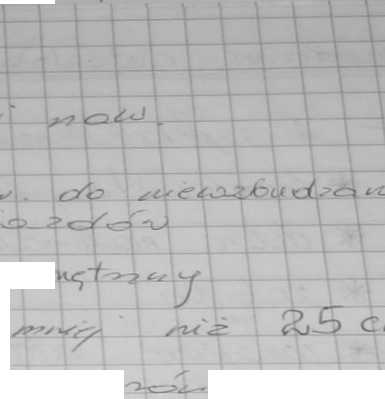 now.
do niewzbudzan
azdów
nętrzny
mniej niż 25 c
rów